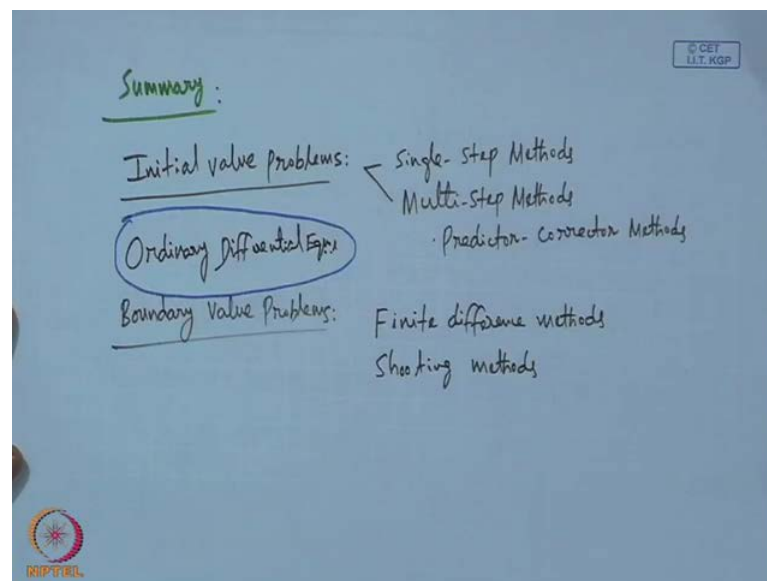 © CET
I.I.T. KGP
Summary :
Initial value Problems: Single-Step Methods
Multi-Step Methods
· Predictor-Corrector Methods
Ordinary Differential Eqns
Boundary Value Problems: Finite difference methods
Shooting methods
NPTEL